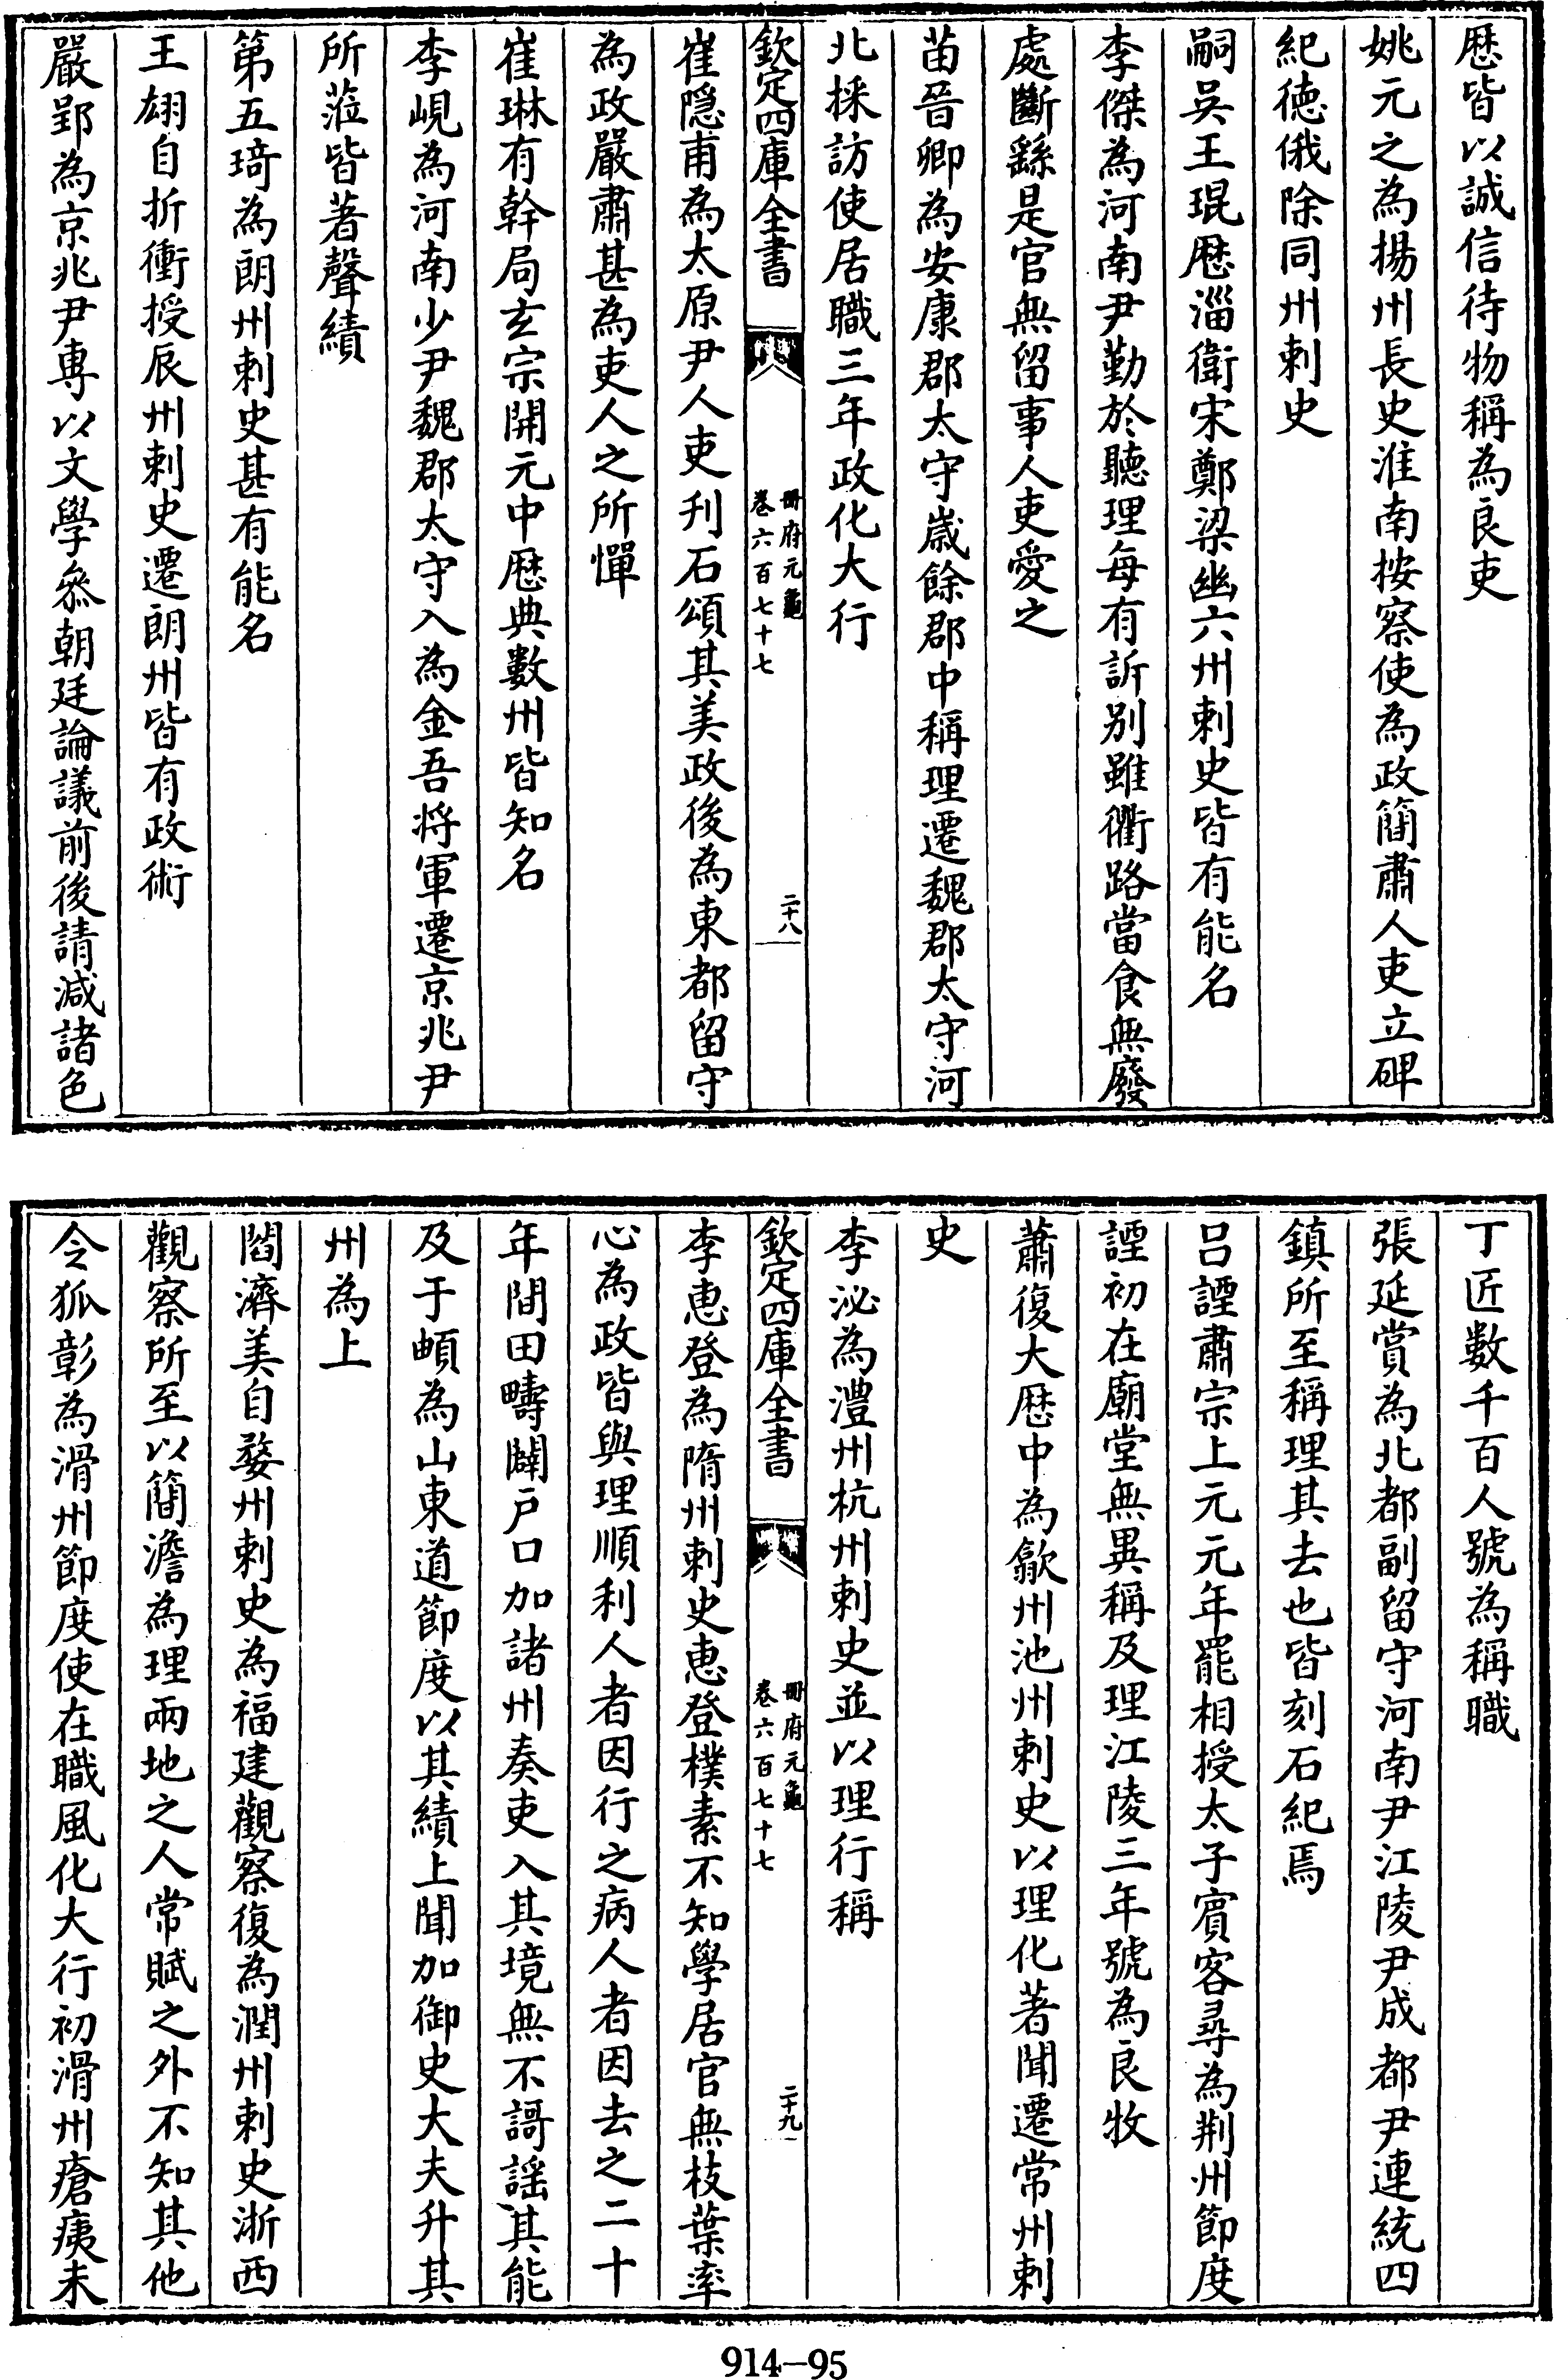 歴皆以誠信待物稱為良吏
姚元之為揚州長史淮南按察使為政簡肅人吏立碑
紀徳俄除同州刺史
嗣吳王琨歴淄衛宋鄭梁幽六州刺史皆有能名
李傑為河南尹勤於聽理每有訴别雖衢路當食無廢
處斷繇是官無留事人吏愛之
苗晉卿為安康郡太守嵗餘郡中稱理遷魏郡太守河
北採訪使居職三年政化大行
欽定四庫全書
冊府元龜
卷六百七十七
二十八
崔隠甫為太原尹人吏刋石頌其美政後為東都留守
為政嚴肅甚為吏人之所憚
崔琳有幹局玄宗開元中歴典數州皆知名
李峴為河南少尹魏郡太守入為金吾将軍遷京兆尹
所蒞皆著聲績
第五琦為朗州刺史甚有能名
王翃自折衝授辰州刺史遷朗州皆有政術
嚴郢為京兆尹専以文學叅朝廷論議前後請減諸色
丁匠數千百人號為稱職
張延賞為北都副留守河南尹江陵尹成都尹連統四
鎮所至稱理其去也皆刻石紀焉
吕諲肅宗上元元年罷相授太子賓客尋為荆州節度
諲初在廟堂無異稱及理江陵三年號為良牧
蕭復大歴中為歙州池州刺史以理化著聞遷常州刺
史
李泌為澧州杭州刺史並以理行稱
欽定四庫全書
冊府元龜
卷六百七十七
二十九
李恵登為隋州刺史恵登樸素不知學居官無枝葉率
心為政皆與理順利人者因行之病人者因去之二十
年間田疇闢户口加諸州奏吏入其境無不謌謡其能
及于頔為山東道節度以其績上聞加御史大夫升其
州為上
閻濟美自婺州刺史為福建觀察復為潤州刺史浙西
觀察所至以簡澹為理兩地之人常賦之外不知其他
令狐彰為滑州節度使在職風化大行初滑州瘡痍未
914-95